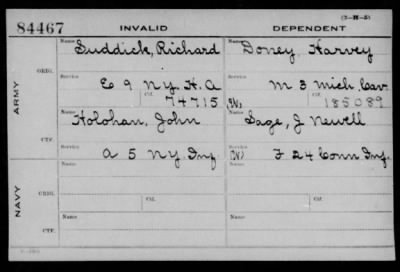 (3-H-5)
84467 INVALID DEPENDENT
Name Name
Suddick, Richard Doney, Harvey
ORIG.
Service Service
E 9 N.Y. H.A M 3 Mich. Cav.
Ctf. Ctf.
74715 (W) 185089
ARMY
Name Name
Holohan, John Sage, J Newell
CTF.
Service Service
A 5 N.Y. Inf (W) F 24 Conn Inf.
Name Name
ORIG.
Ctf. Ctf.
NAVY
Name Name
CTF.